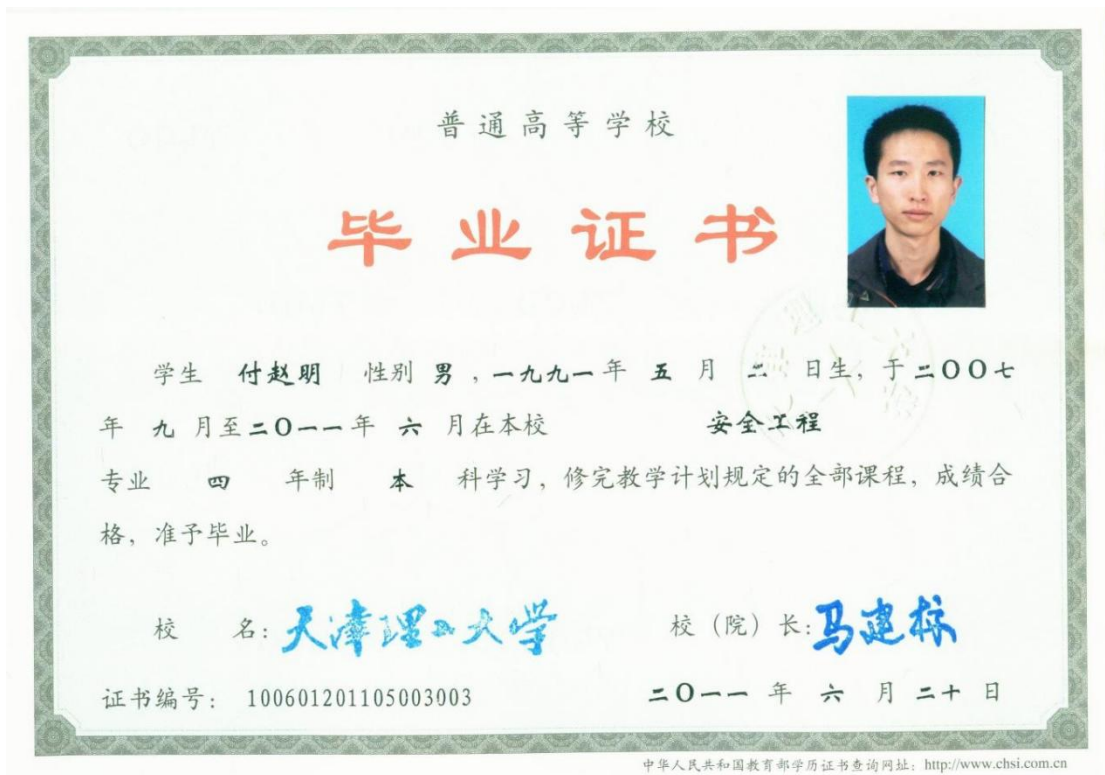 普通高等学校
毕业证书
学生 付赵明 性别 男，一九九一年 五 月 二 日生，于二〇〇七
年 九 月至二〇一一年 六 月在本校 安全工程
专业 四 年制 本 科学习，修完教学计划规定的全部课程，成绩合
格，准予毕业。
校 名：天津理工大学 校（院）长：马建标
证书编号： 100601201105003003 二〇一一 年 六 月 二十 日
中华人民共和国教育部学历证书查询网址：http://www.chsi.com.cn